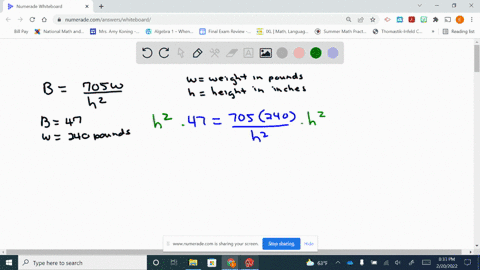 Numerade Whiteboard
numerade.com/answers/whiteboard/
Bill Pay
National Math and...
Mrs. Amy Koning -...
Algebra 1 – Whenn...
Final Exam Review -...
IXL | Math, Languag...
Summer Math Practi...
Reading list
B = 705w / h²
w = weight in pounds
h = height in inches
B = 47
w = 240 pounds
h² · 47 = 705(240) / h² · h²
www.numerade.com is sharing your screen.
Stop sharing
Hide
Type here to search
62°F
8:31 PM
2/20/2022